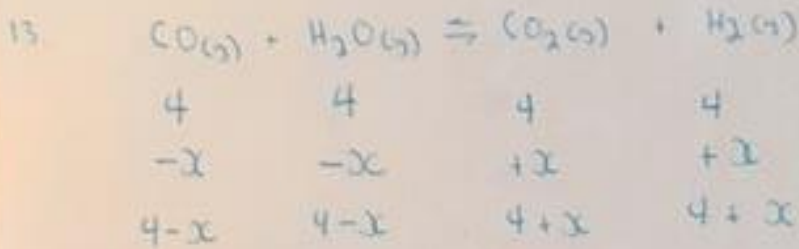 13 CO(g) + H₂O(g) ⇋ CO₂(g) + H₂(g)
4 4 4 4
-x -x +x +x
4-x 4-x 4+x 4+x